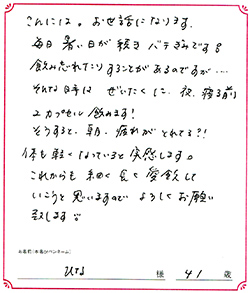 こんにちは。お世話になります。
毎日暑い日が続きバテぎみです。
飲み忘れたりすることがあるのですが…
そんな時は ぜいたくに、夜、寝る前
2カプセル飲みます！
そうすると、朝、疲れがとれてる？！
体も軽くなっていると実感します。
これからも末永く長く愛飲して
いこうと思いますので よろしくお願い
致します。
お名前（本名orペンネーム）
UTS 様 41 歳